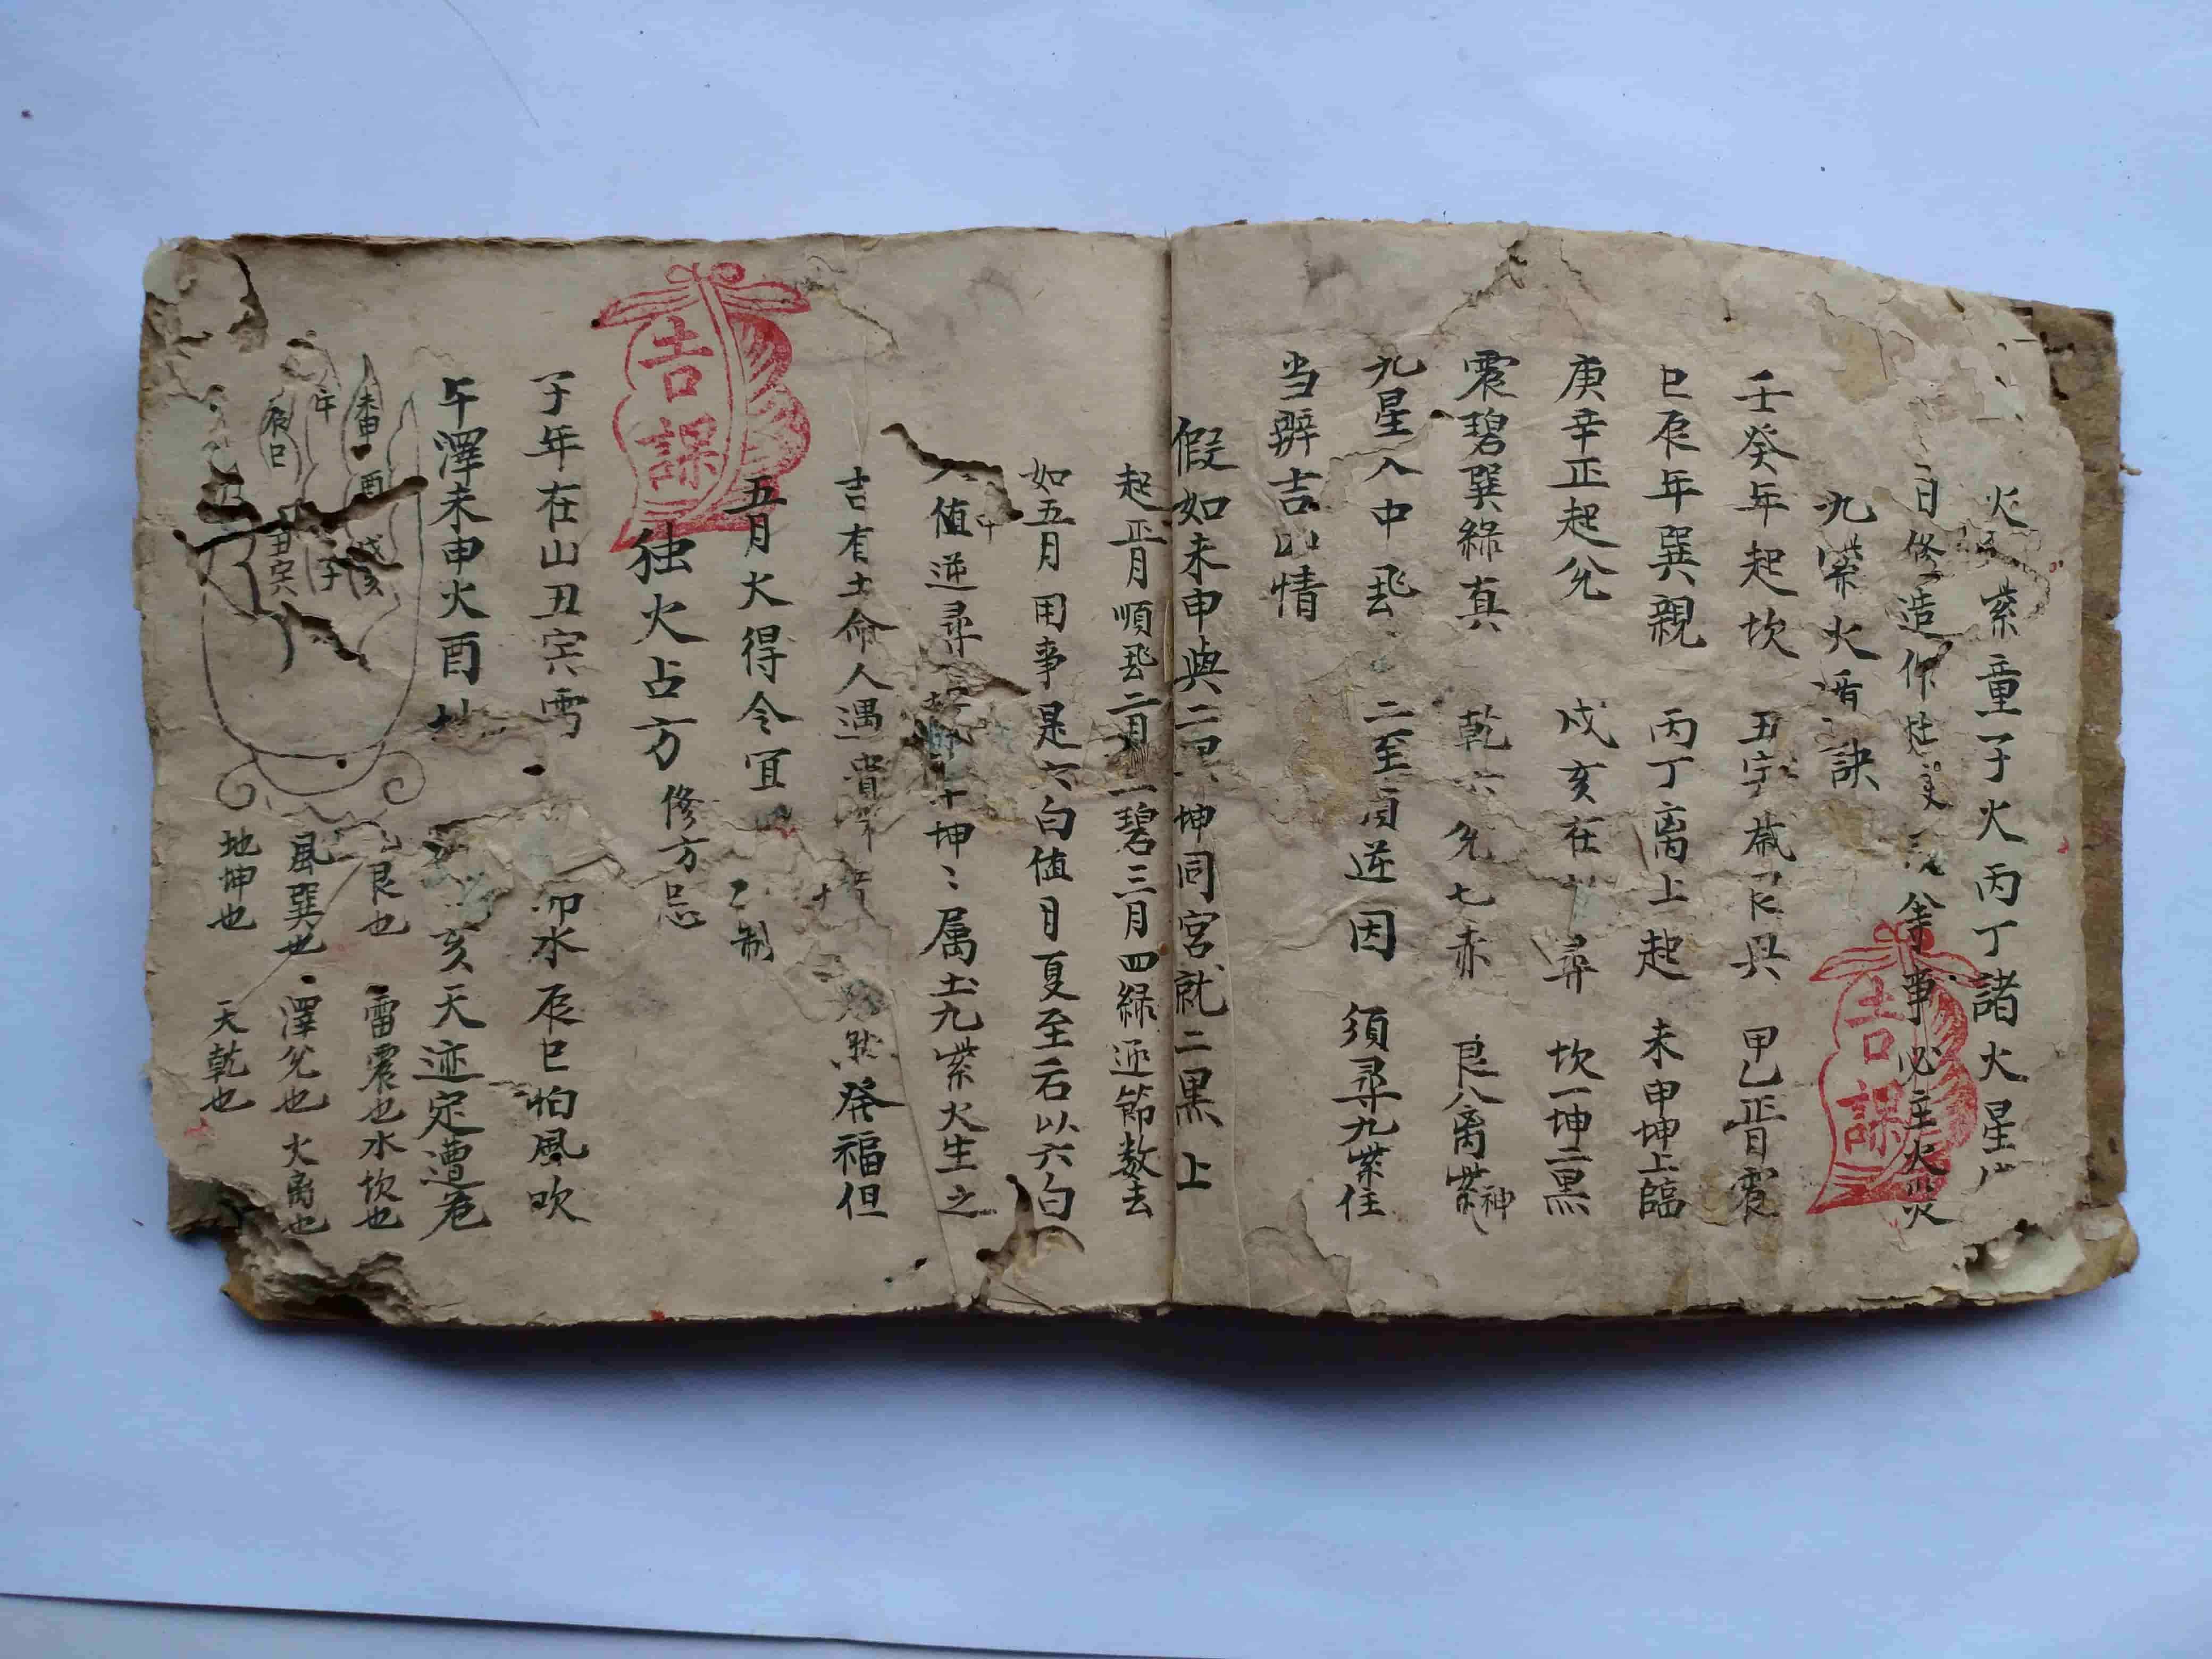 火索童子火丙丁諸火星
日修造作灶事必主火災
九紫火訣
壬癸年起坎 丑 歲艮具 甲乙正晋震
巳辰年巽親 丙丁离上起 未申坤上臨
庚辛正起兌 戌亥在尋 坎一坤二黑
震碧巽綠真 乾六兌七赤 艮八离紫神
九星入中飛 二至逆因 須尋九紫住
当辨吉凶情
假如未申與二坤同宮就二黑上
起正月順飛二月三碧三月四綠逐節数去
如五月用事是六白值月夏至后以六白
入中值逆尋坤〻属土九紫火生之
吉有土命人遇貴發福但
五月火得令宜制
独火占方 修方忌
子年在山丑寅雷 卯水辰巳怕風吹
午澤未申火酉地 亥天遊定遭危
未申 酉 戌亥
午 子
辰巳 丑寅
艮也 雷震也 水坎也
風巽也 澤兌也 火离也
地坤也 天乾也
吉課
吉課